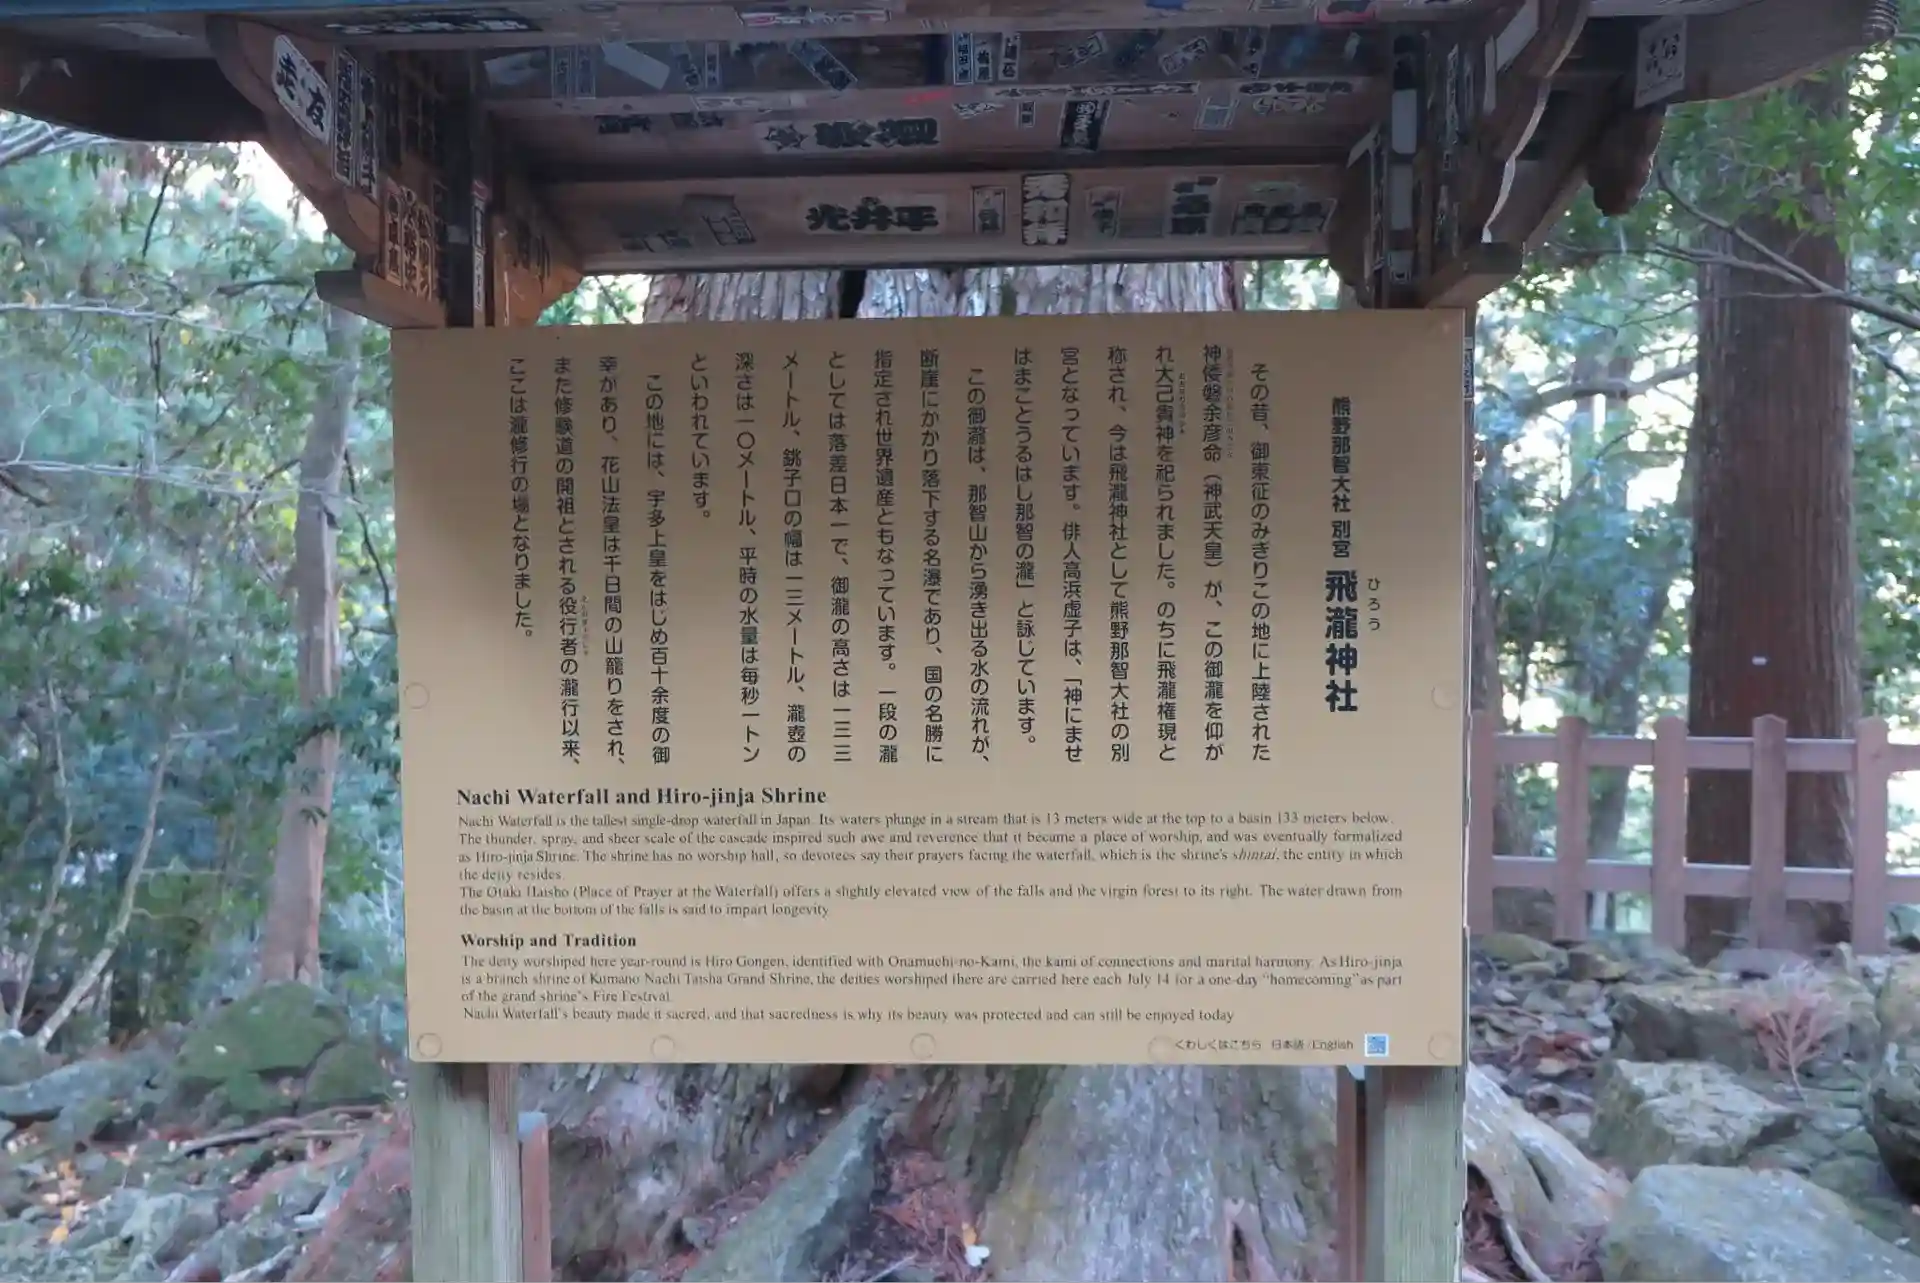 熊野那智大社 別宮 飛瀧神社
ひろう
その昔、御東征のみぎりこの地に上陸された
神倭磐余彦命（神武天皇）が、この御瀧を仰が
れ大己貴神を祀られました。のちに飛瀧権現と
称され、今は飛瀧神社として熊野那智大社の別
宮となっています。俳人高浜虚子は、「神にませ
はまことうるはし那智の瀧」と詠じています。
この御瀧は、那智山から湧き出る水の流れが、
断崖にかかり落下する名瀑であり、国の名勝に
指定され世界遺産ともなっています。一段の瀧
としては落差日本一で、御瀧の高さは一三三
メートル、銚子口の幅は一三メートル、瀧壺の
深さは一〇メートル、平時の水量は毎秒一トン
といわれています。
この地には、宇多上皇をはじめ百十余度の御
幸があり、花山法皇は千日間の山籠りをされ、
また修験道の開祖とされる役行者の瀧行以来、
ここは瀧修行の場となりました。
Nachi Waterfall and Hiro-jinja Shrine
Nachi Waterfall is the tallest single-drop waterfall in Japan. Its waters plunge in a stream that is 13 meters wide at the top to a basin 133 meters below.
The thunder, spray, and sheer scale of the cascade inspired such awe and reverence that it became a place of worship, and was eventually formalized
as Hiro-jinja Shrine. The shrine has no worship hall, so devotees say their prayers facing the waterfall, which is the shrine's shintai, the entity in which
the deity resides.
The Otaki Haisho (Place of Prayer at the Waterfall) offers a slightly elevated view of the falls and the virgin forest to its right. The water drawn from
the basin at the bottom of the falls is said to impart longevity.
Worship and Tradition
The deity worshiped here year-round is Hiro Gongen, identified with Onamuchi-no-Kami, the kami of connections and marital harmony. As Hiro-jinja
is a branch shrine of Kumano Nachi Taisha Grand Shrine, the deities worshiped there are carried here each July 14 for a one-day "homecoming" as part
of the grand shrine's Fire Festival.
Nachi Waterfall's beauty made it sacred, and that sacredness is why its beauty was protected and can still be enjoyed today
くわしくはこちら 日本語/English